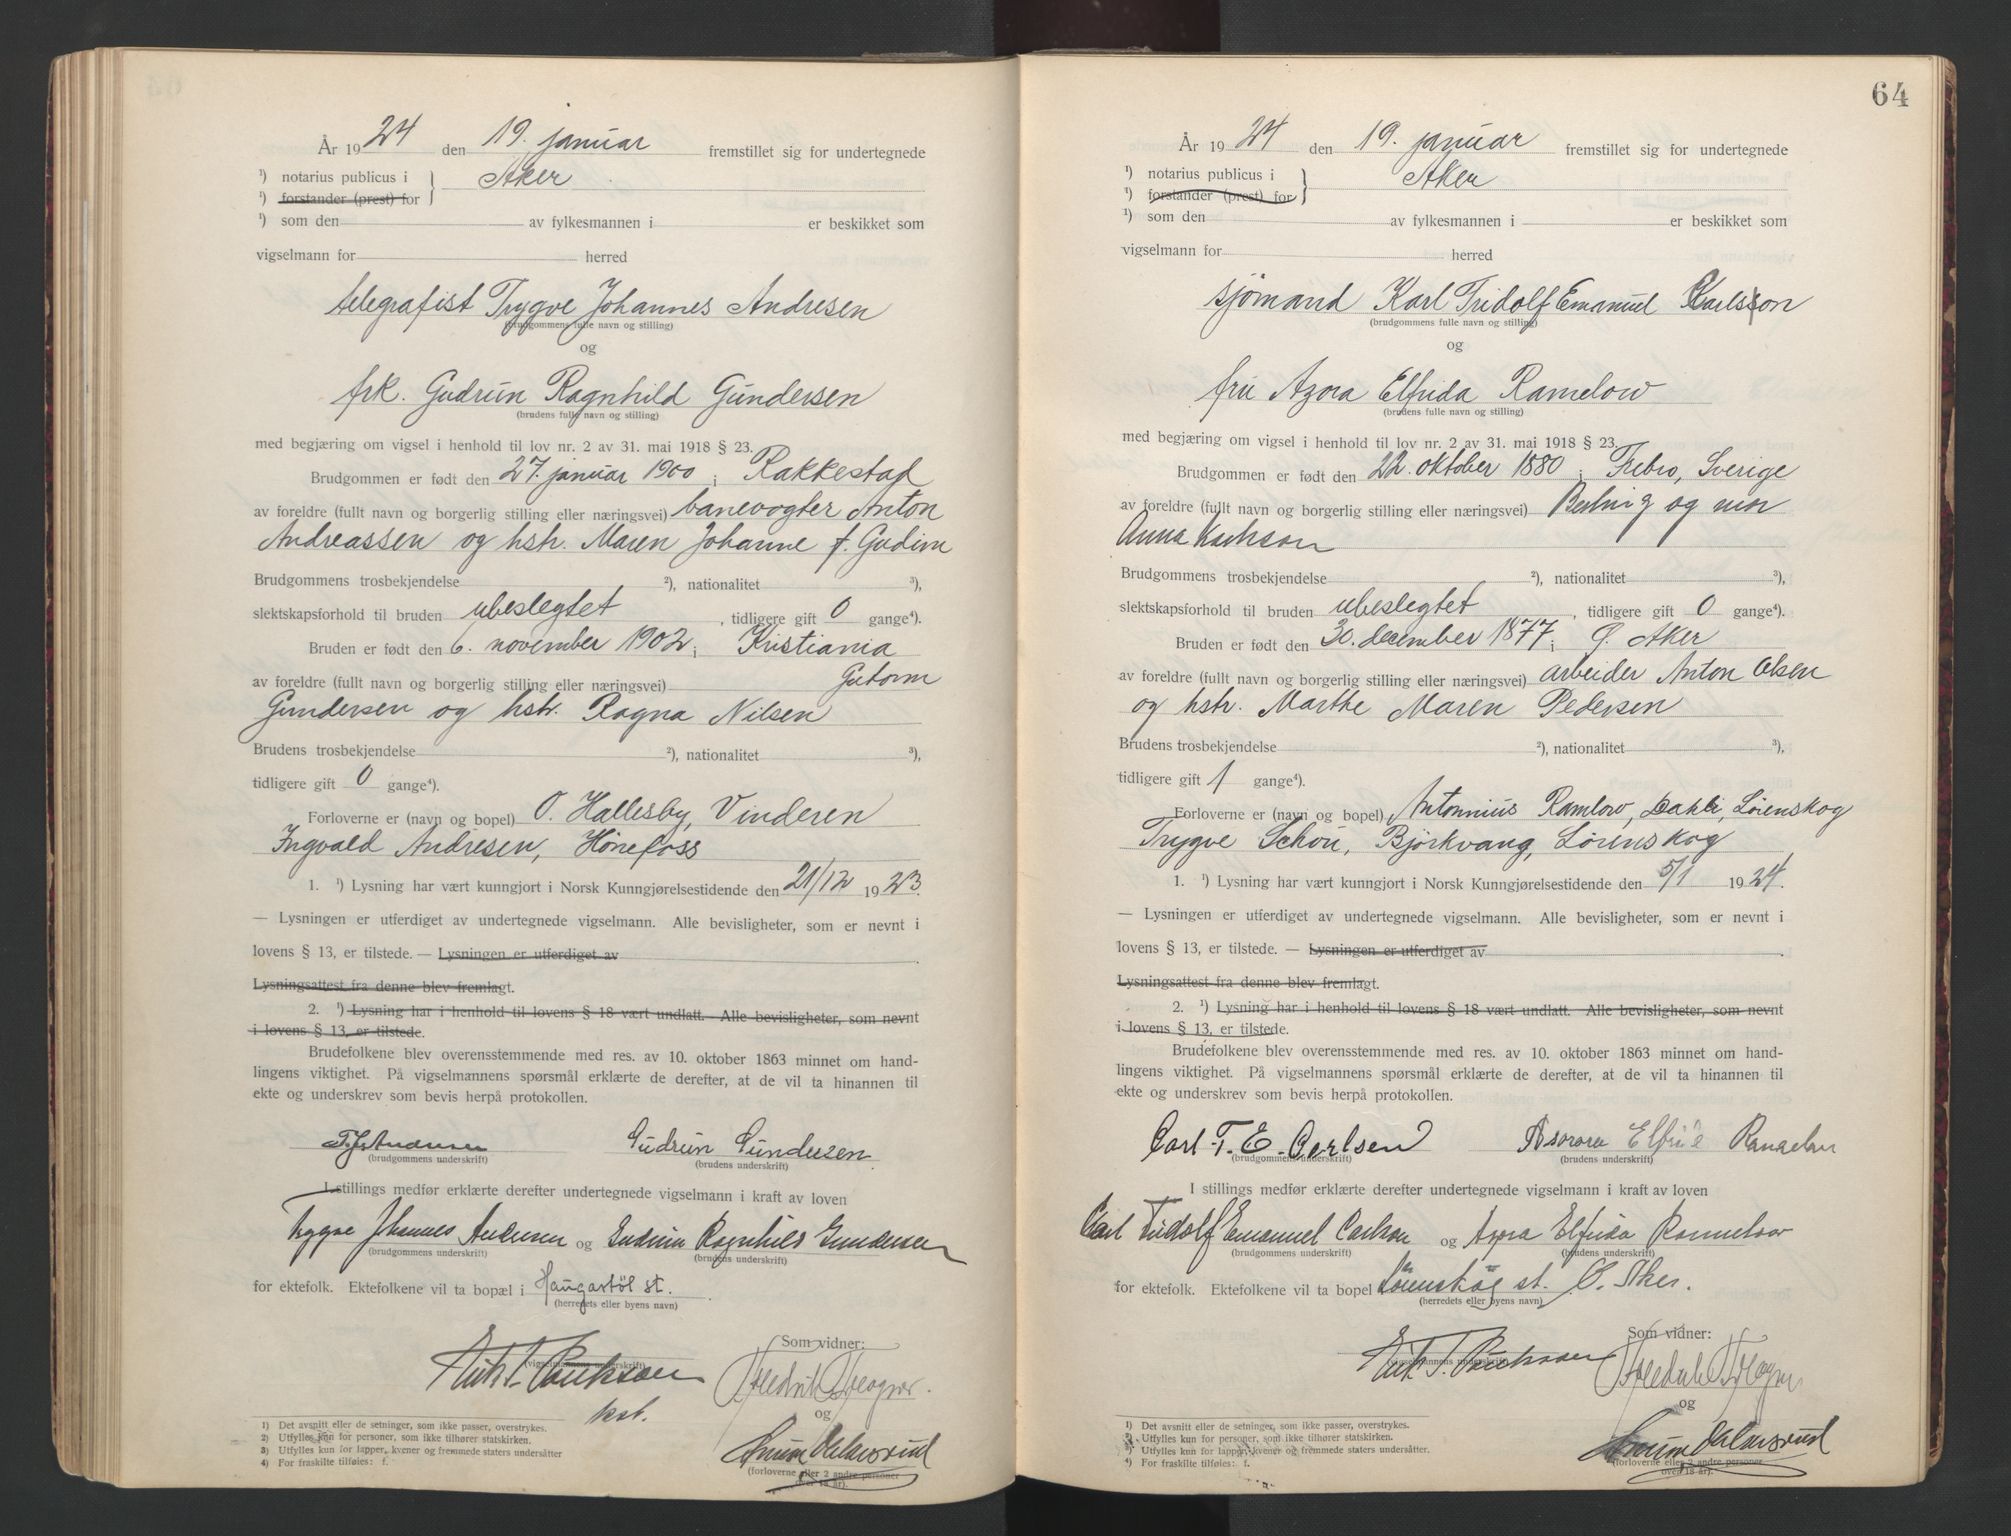 År 1924 den 19. januar fremstillet sig for undertegnede
¹) notarius publicus i Aker
¹) forstander (prest) for
¹) som den av fylkesmannen i er beskikket som
vigselmann for herred
telegrafist Trygve Johannes Andresen
(brudgommens fulle navn og stilling)
og
frk. Gudrun Ragnhild Gundersen
(brudens fulle navn og stilling)
med begjæring om vigsel i henhold til lov nr. 2 av 31. mai 1918 § 23.
Brudgommen er født den 27. januar 1900 i Rakkestad
av foreldre (fullt navn og borgerlig stilling eller næringsvei) banevogter Anton
Andreassen og hstr. Maren Johanne f. Gudim
Brudgommens trosbekjendelse ²), nationalitet ³),
slektskapsforhold til bruden ubeslegtet, tidligere gift 0 gange⁴).
Bruden er født den 6. november 1902 i Kristiania
av foreldre (fullt navn og borgerlig stilling eller næringsvei) Gutorm
Gundersen og hstr. Ragna Nilsen
Brudens trosbekjendelse ²), nationalitet ³),
tidligere gift 0 gange⁴).
Forloverne er (navn og bopel) O. Hallesby, Vinderen
Ingvald Andresen, Hønefoss
1. ¹) Lysning har vært kunngjort i Norsk Kunngjørelsestidende den 21/12 1923.
— Lysningen er utferdiget av undertegnede vigselmann. Alle bevisligheter, som er nevnt i
lovens § 13, er tilstede. — Lysningen er utferdiget av
Lysningsattest fra denne blev fremlagt.
2. ¹) Lysning har i henhold til lovens § 18 vært undlatt. Alle bevisligheter, som nevnt
i lovens § 13, er tilstede.
Brudefolkene blev overensstemmende med res. av 10. oktober 1863 minnet om hand-
lingens viktighet. På vigselmannens spørsmål erklærte de derefter, at de vil ta hinannen til
ekte og underskrev som bevis herpå protokollen.
T. J. Andresen Gudrun Gundersen
(brudgommens underskrift) (brudens underskrift)
I stillings medfør erklærte derefter undertegnede vigselmann i kraft av loven
Trygve Johannes Andresen og Gudrun Ragnhild Gundersen
(brudgommens underskrift) (brudens underskrift)
for ektefolk. Ektefolkene vil ta bopæl i Haugastøl st.
(herredets eller byens navn)
Som vidner:
(vigselmannens underskrift)
kst.
og
(forloverne eller 2 andre personer
over 18 år).
1) Det avsnitt eller de setninger, som ikke passer, overstrykes.
2) Utfylles kun for personer, som ikke tilhører statskirken.
3) Utfylles kun for lapper, kvener og fremmede staters undersåtter
4) For fraskilte tilføies: f.
64
År 1924 den 19. januar fremstillet sig for undertegnede
¹) notarius publicus i Aker
¹) forstander (prest) for
¹) som den av fylkesmannen i er beskikket som
vigselmann for herred
sjømand Karl Tridolf Emanuel Carlson
(brudgommens fulle navn og stilling)
og
fru Azora Elfrida Ramelow
(brudens fulle navn og stilling)
med begjæring om vigsel i henhold til lov nr. 2 av 31. mai 1918 § 23.
Brudgommen er født den 22. oktober 1880 i Sverige
av foreldre (fullt navn og borgerlig stilling eller næringsvei) og mor
Anna Karlsson
Brudgommens trosbekjendelse ²), nationalitet ³),
slektskapsforhold til bruden ubeslegtet, tidligere gift 0 gange⁴).
Bruden er født den 30. december 1877 i Ø. Aker
av foreldre (fullt navn og borgerlig stilling eller næringsvei) arbeider Anton Olsen
og hstr. Marthe Maren Pedersen
Brudens trosbekjendelse ²), nationalitet ³),
tidligere gift 1 gange⁴).
Forloverne er (navn og bopel) Antonnius Ramlow, Dahli, Lørenskog
Trygve Schou, Bjørkvang, Lørenskog
1. ¹) Lysning har vært kunngjort i Norsk Kunngjørelsestidende den 5/1 1924.
— Lysningen er utferdiget av undertegnede vigselmann. Alle bevisligheter, som er nevnt i
lovens § 13, er tilstede. — Lysningen er utferdiget av
Lysningsattest fra denne blev fremlagt.
2. ¹) Lysning har i henhold til lovens § 18 vært undlatt. Alle bevisligheter, som nevnt
i lovens § 13, er tilstede.
Brudefolkene blev overensstemmende med res. av 10. oktober 1863 minnet om hand-
lingens viktighet. På vigselmannens spørsmål erklærte de derefter, at de vil ta hinannen til
ekte og underskrev som bevis herpå protokollen.
Carl T. E. Carlsen
(brudgommens underskrift) (brudens underskrift)
I stillings medfør erklærte derefter undertegnede vigselmann i kraft av loven
Carl Tridolf Emanuel Carlson og Azora Elfrida Ramelow
(brudgommens underskrift) (brudens underskrift)
for ektefolk. Ektefolkene vil ta bopel Lørenskog st. Ø. Aker.
(herredets eller byens navn)
Som vidner:
(vigselmannens underskrift)
og
(forloverne eller 2 andre personer
over 18 år).
1) Det avsnitt eller de setninger, som ikke passer, overstrykes.
2) Utfylles kun for personer, som ikke tilhører statskirken.
3) Utfylles kun for lapper, kvener og fremmede staters undersåtter.
4) For fraskilte tilføies: f.